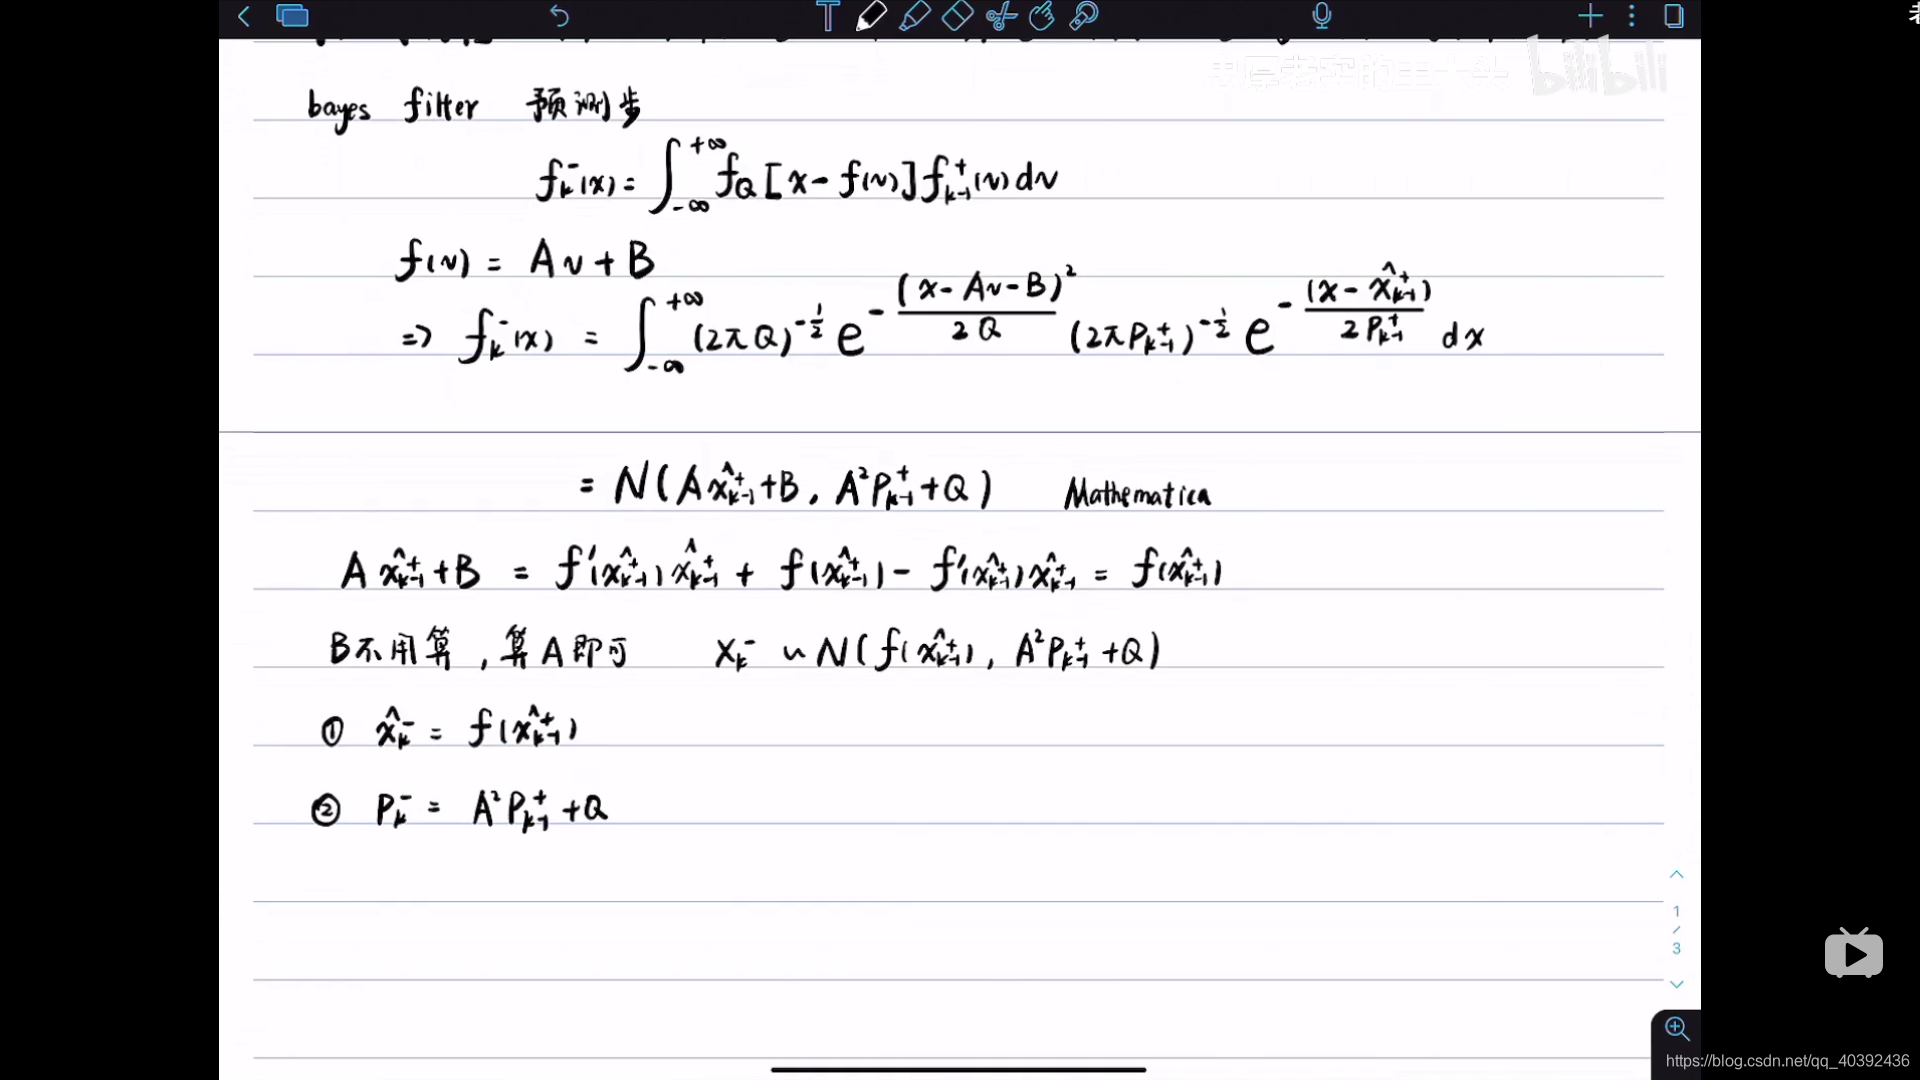 bayes filter 预测步
f_k^-(x) = ∫_{-∞}^{+∞} f_Q [x - f(v)] f_{k-1}^+(v) dv
f(v) = Av + B
=> f_k^-(x) = ∫_{-∞}^{+∞} (2πQ)^{-1/2} e^{-(x - Av - B)^2 / 2Q} (2πP_{k-1}^+)^{-1/2} e^{-(x - x̂_{k-1}^+) / 2P_{k-1}^+} dx
= N(A x̂_{k-1}^+ + B, A^2 P_{k-1}^+ + Q) Mathematica
A x̂_{k-1}^+ + B = f'(x̂_{k-1}^+) x̂_{k-1}^+ + f(x̂_{k-1}^+) - f'(x̂_{k-1}^+) x̂_{k-1}^+ = f(x̂_{k-1}^+)
B不用算, 算A即可 X_k^- ~ N(f(x̂_{k-1}^+), A^2 P_{k-1}^+ + Q)
① x̂_k^- = f(x̂_{k-1}^+)
② P_k^- = A^2 P_{k-1}^+ + Q
bilibili
1
/
3
https://blog.csdn.net/qq_40392436